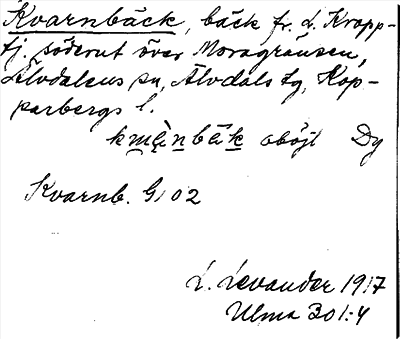 Kvarnbäck, bäck fr. L. Kropp-
tj. söderut över Moragränsen,
Älvdalens sn, Älvdals tg, Kop-
parbergs l.
oböjt Dy
Kvarnb. G 02
L. Levander 1917
Ulma 301:4